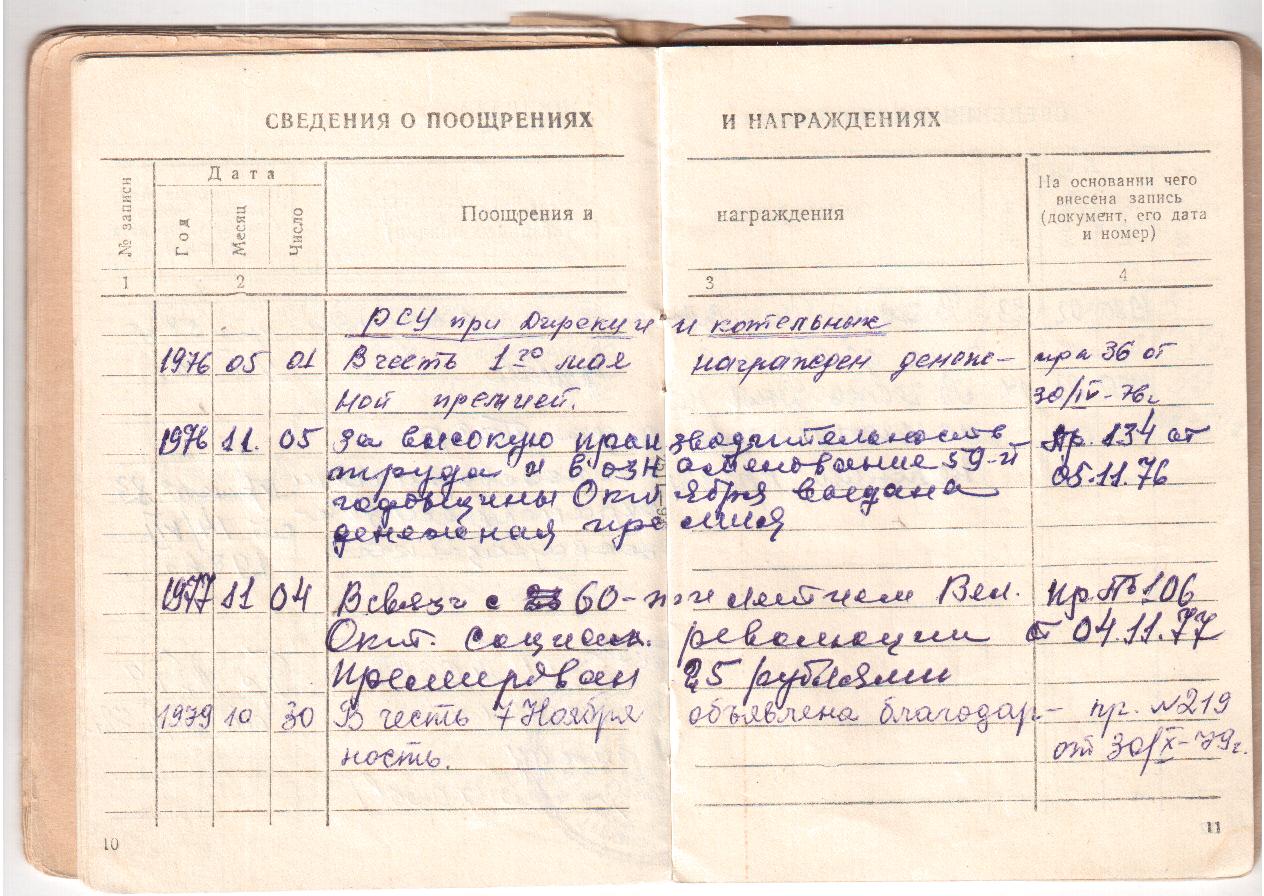 СВЕДЕНИЯ О ПООЩРЕНИЯХ И НАГРАЖДЕНИЯХ
№ записи
Дата
Год
Месяц
Число
Поощрения и награждения
На основании чего
внесена запись
(документ, его дата
и номер)
1 2 3 4
РСУ при Дирекции котельных
1976 05 01 В честь 1го мая награжден денеж- пр. 36 от
ной премией. 30/IV-76г
1976 11. 05 За высокую производительность Пр. 134 от
труда и в ознаменование 59-й 05.11.76
годовщины Октября выдана
денежная премия
1977 11 04 В связи с 60-ти летием Вел. Пр. № 106
Окт. Социал. революции от 04.11.77
Премирован 25 рублями
1979 10 30 В честь 7 Ноября объявлена благодар- пр. №219
ность. от 30/X-79г.
10 11